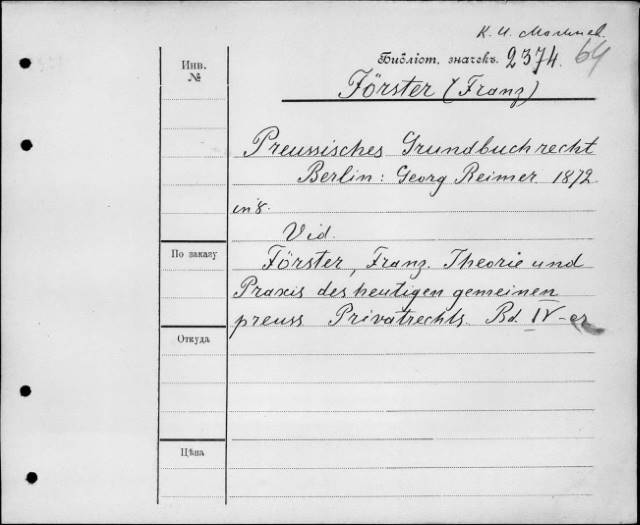 К. И.
Библіот. значекъ. 2374. 64
Инв.
№
Förster (Franz)
Preussisches Grundbuchrecht
Berlin: Georg Reimer 1872
in 8.
Vid.
По заказу
Förster, Franz. Theorie und
Praxis des heutigen gemeinen
preuss Privatrechts. Bd. IV-er
Откуда
Цѣна